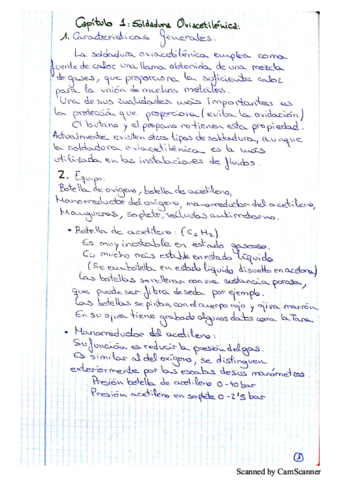 Capítulo 1: Soldadura Oxiacetilénica.
1. Características generales:
La soldadura oxiacetilénica emplea como
fuente de calor una llama obtenida de una mezcla
de gases, que proporciona la suficiente calor
para la unión de muchos metales.
Una de sus cualidades más importantes es
la protección que proporciona (evita la oxidación)
El butano y el propano no tienen esta propiedad.
Actualmente existen otros tipos de soldadura, aunque
la soldadura oxiacetilénica es la más
utilizada en las instalaciones de fluidos.
2. Equipo:
Botella de oxígeno, botella de acetileno,
Manorreductor del oxígeno, manorreductor del acetileno,
Mangueras, soplete, válvulas antirretorno.
• Botella de acetileno: (C2H2)
Es muy inestable en estado gaseoso.
Es mucho más estable en estado líquido
(Se embotella en estado líquido disuelto en acetona)
Las botellas se rellenan con una sustancia porosa,
que puede ser fibra de seda por ejemplo.
Las botellas se pintan con el cuerpo rojo y ojiva marrón
En su ojiva tiene grabado algunos datos como la Tara
• Manorreductor del acetileno:
Su función es reducir la presión del gas.
Es similar al del oxígeno, se distinguen
exteriormente por las escalas de sus manómetros
Presión botella de acetileno 0-40 bar
Presión acetileno en soplete 0-2'5 bar
1
Scanned by CamScanner